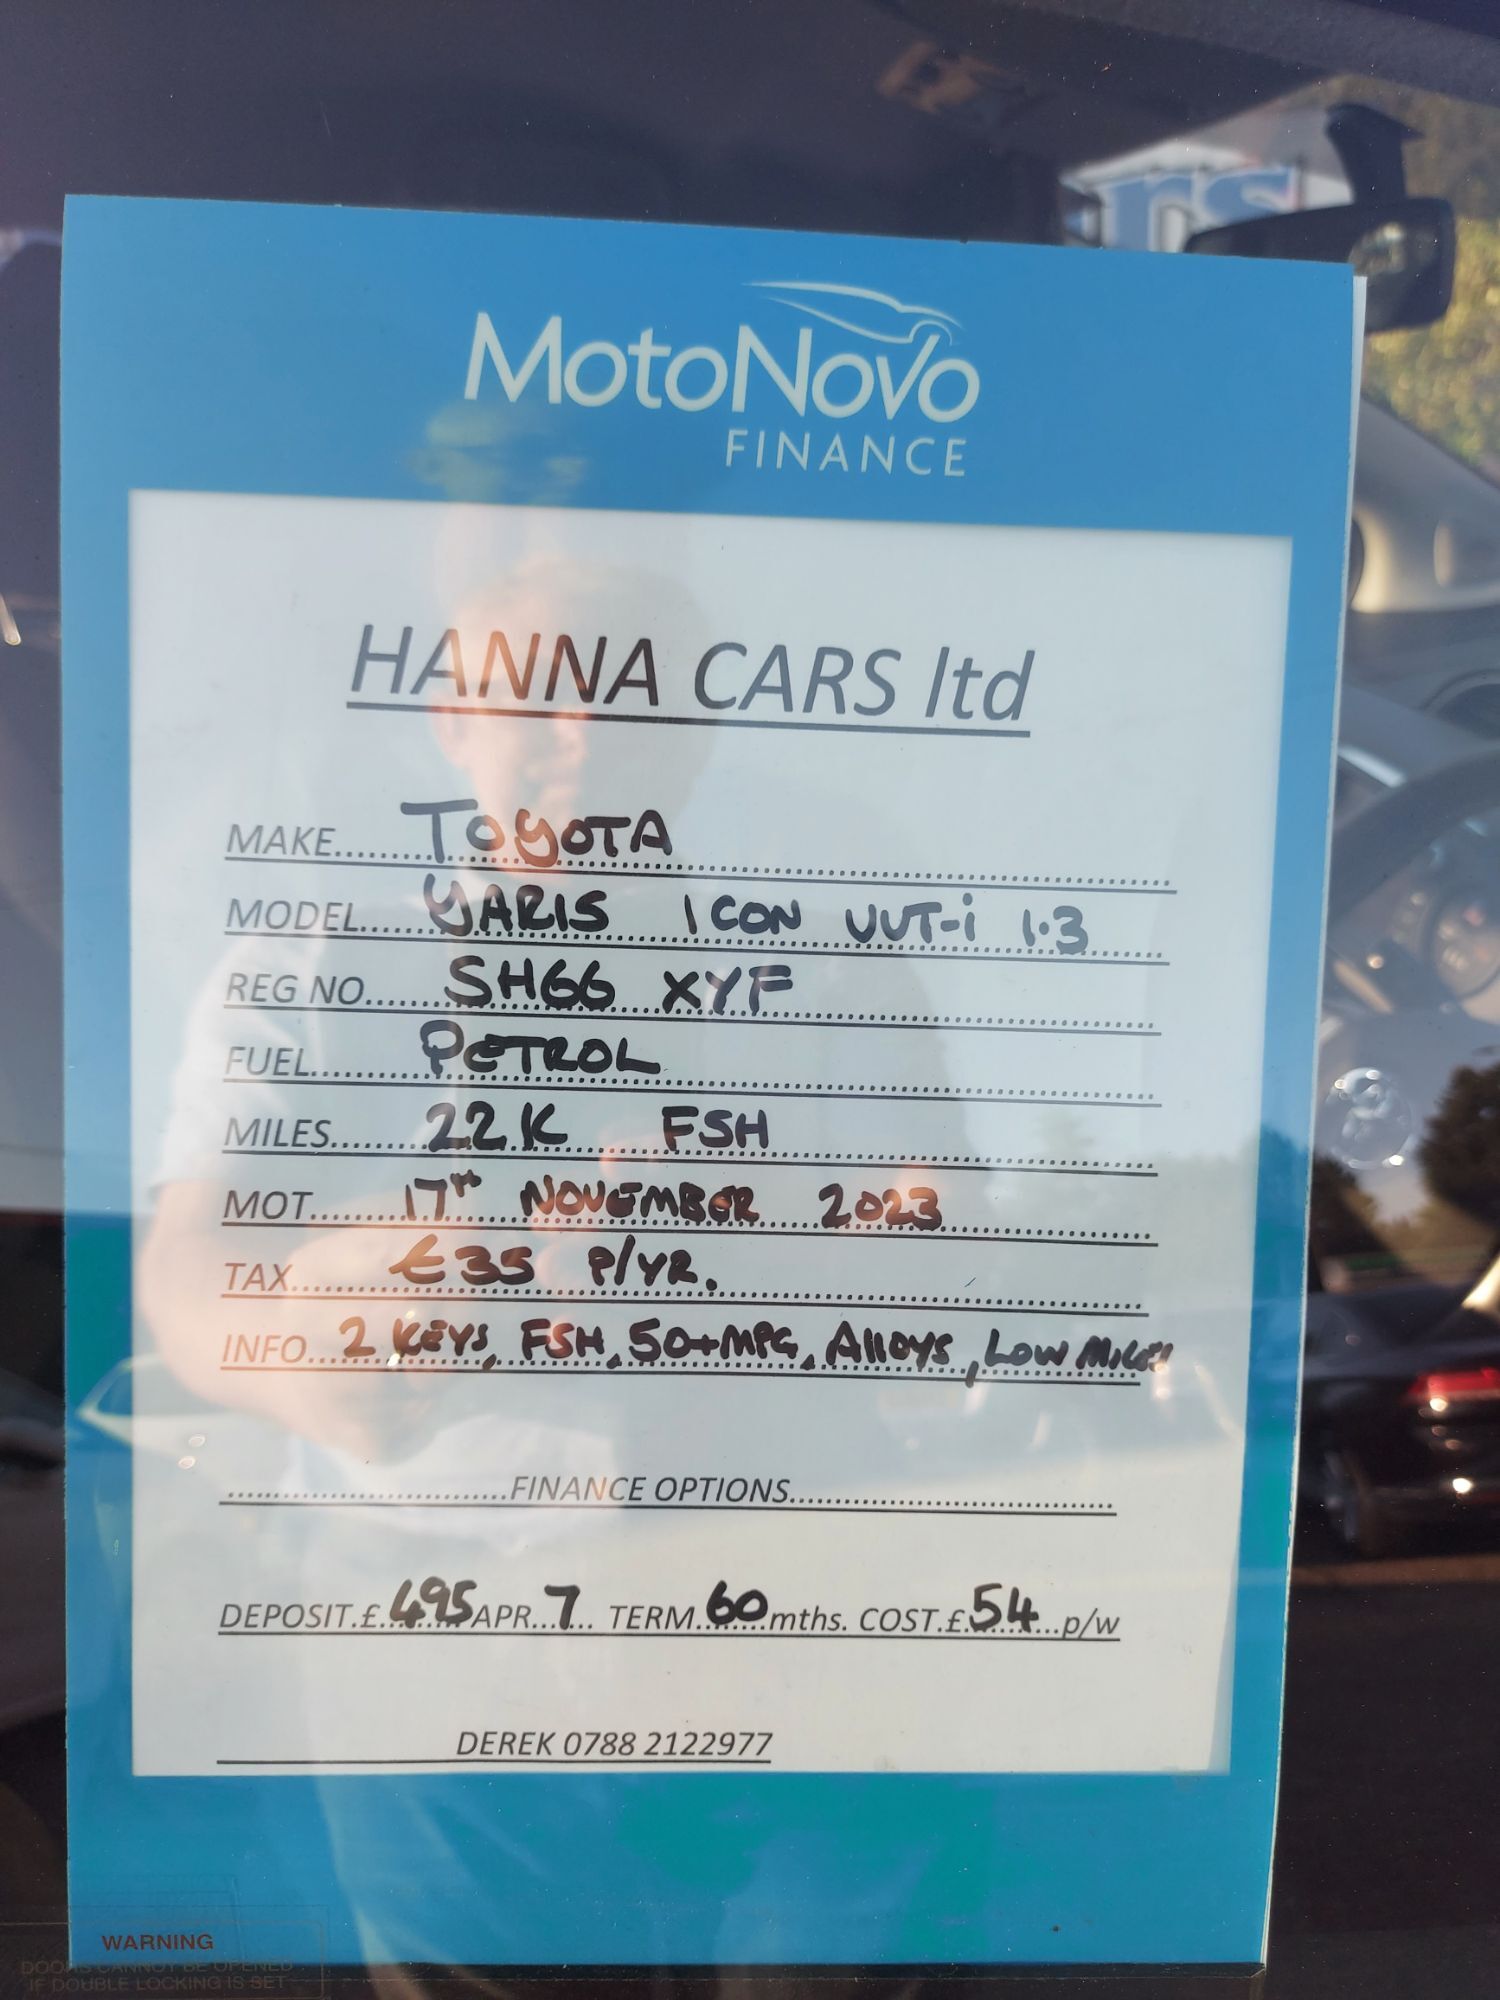 rs
MotoNovo
FINANCE
HANNA CARS ltd
MAKE......TOYOTA
MODEL.....YARIS ICON VVT-i 1.3
REG NO......SH66 XYF
FUEL......PETROL
MILES......22K FSH
MOT......17TH NOVEMBER 2023
TAX......£35 P/YR.
INFO...2 KEYS, FSH, 50+MPG, Alloys, LOW MILES
......FINANCE OPTIONS......
DEPOSIT.£.495 APR...7... TERM..60 mths. COST.£.54...p/w
DEREK 0788 2122977
WARNING
DOORS CANNOT BE OPENED
IF DOUBLE LOCKING IS SET